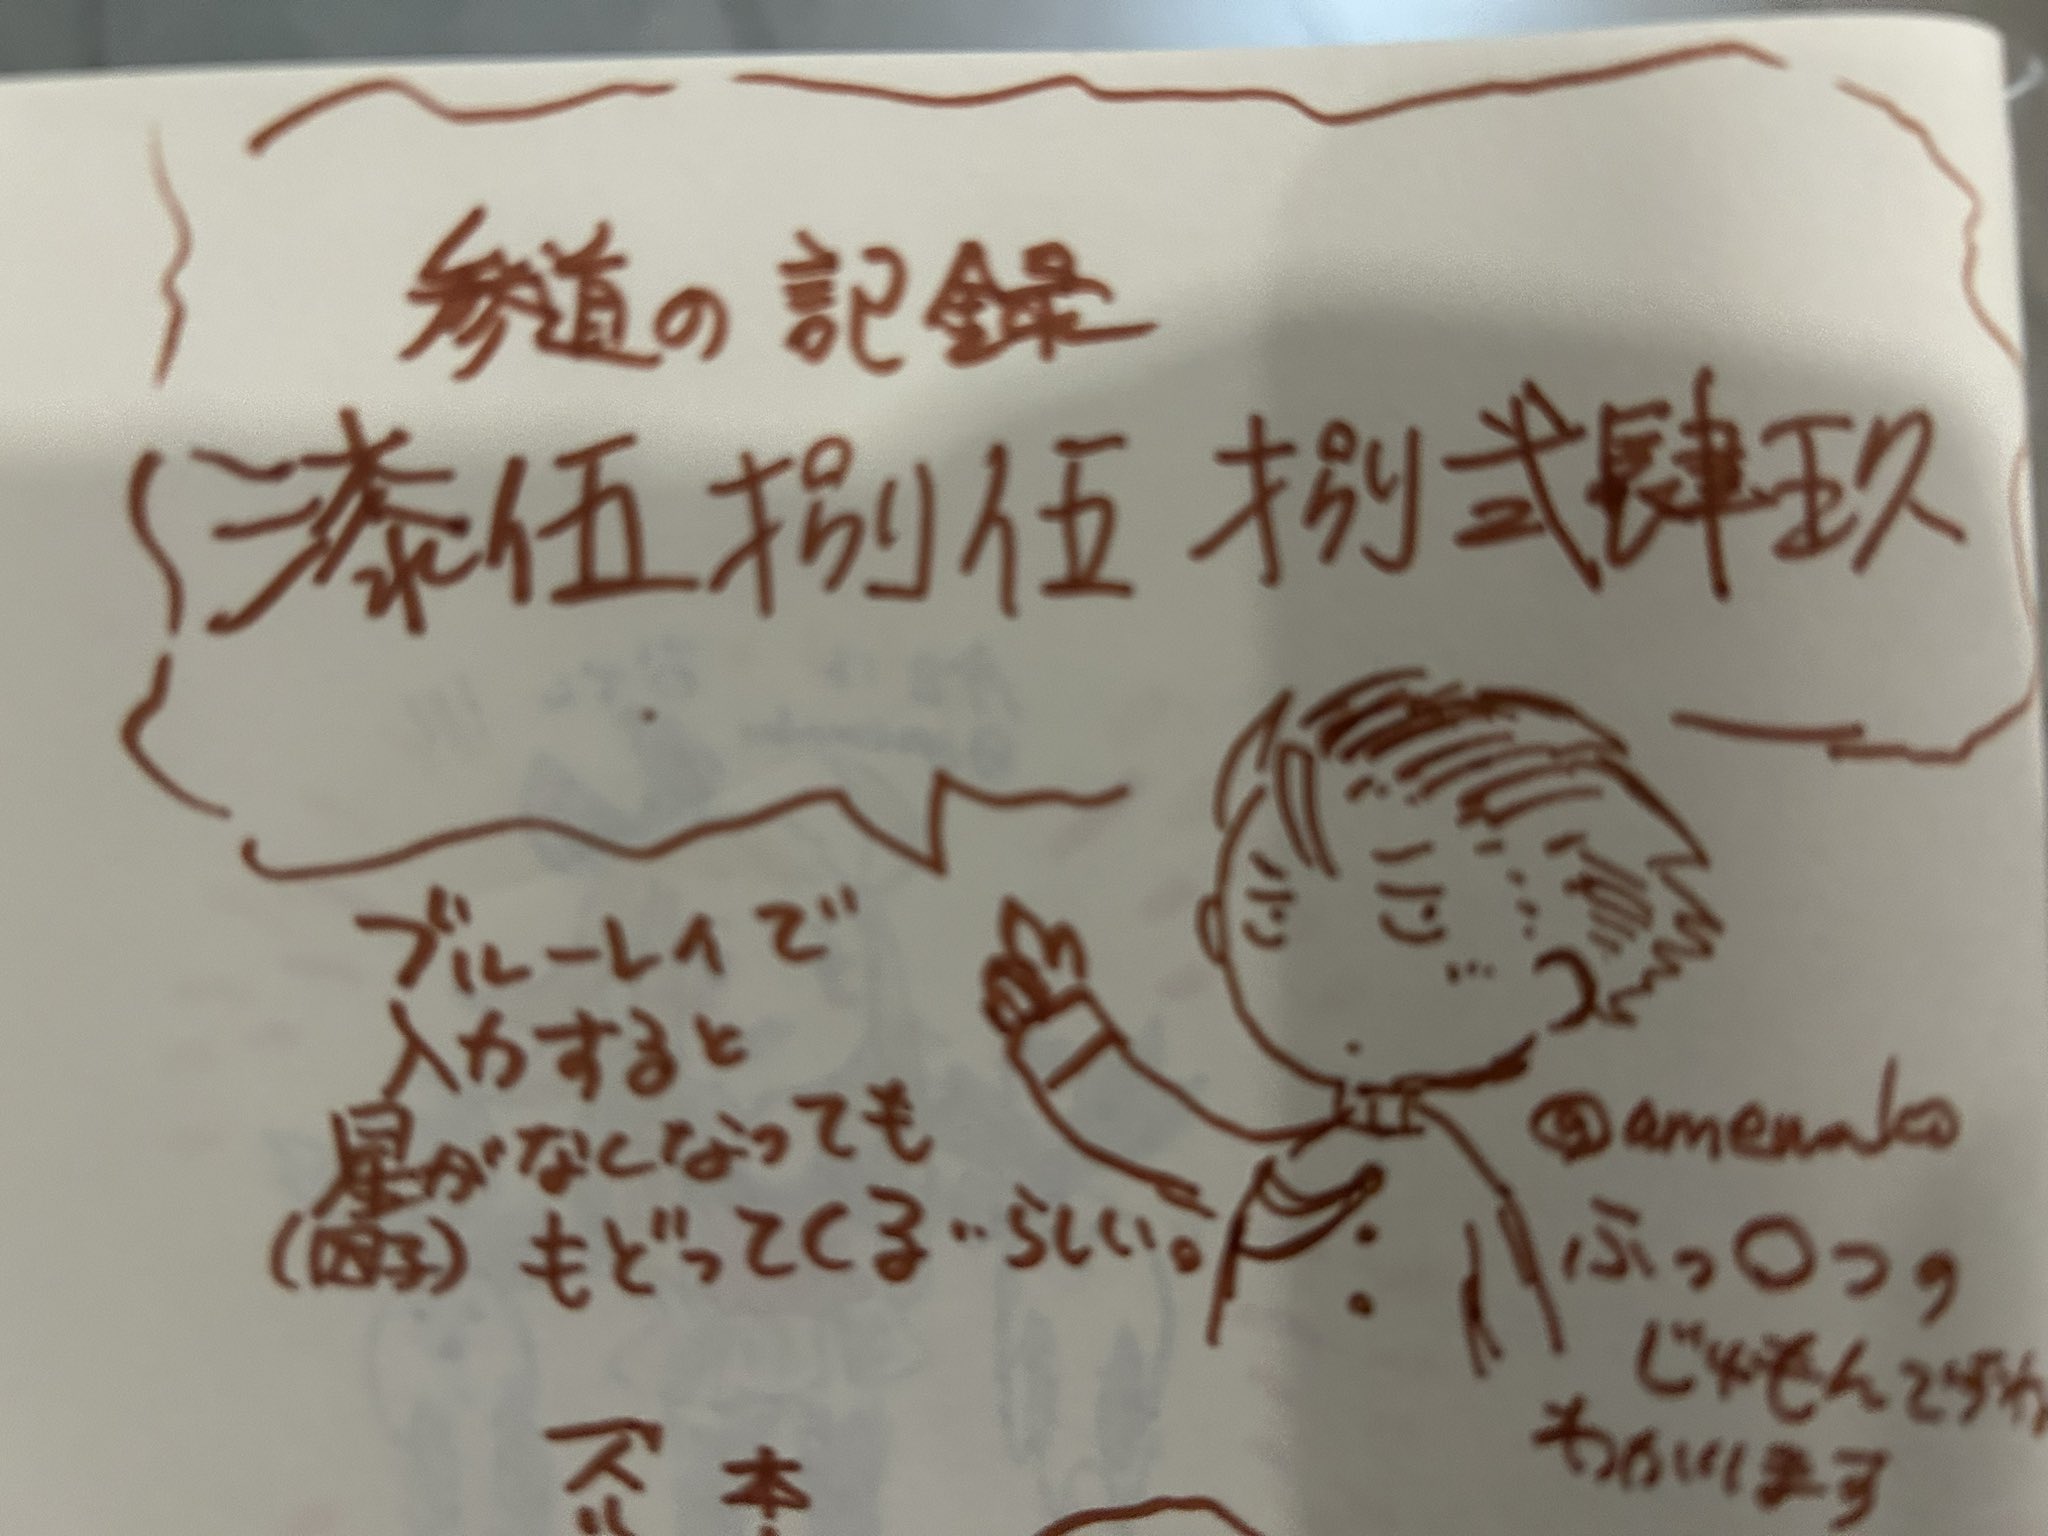 参道の記録
漆伍捌伍 捌弐肆玖
ブルーレイで
入力すると
星がなくなっても
(因子)もどってくる‥らしい。
@amenako
ふっ〇つの
じゅもんで
ズル
本